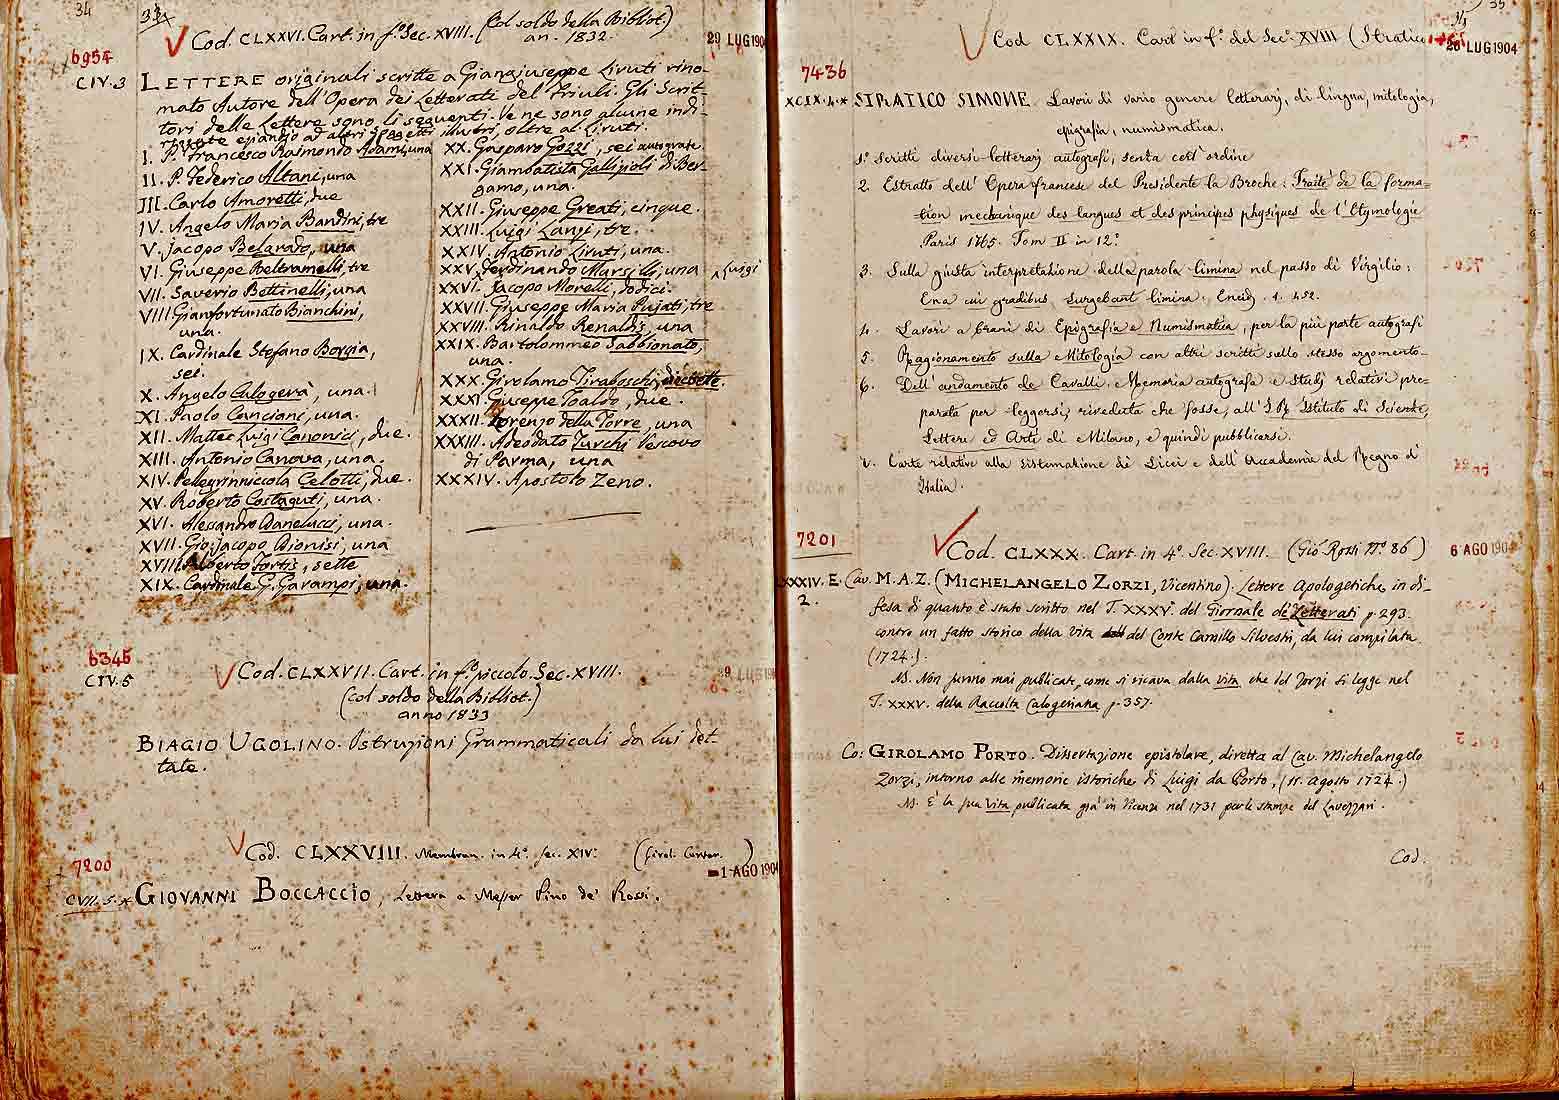 34
33
Cod. CLXXVI. Cart. in f.º Sec. XVIII. (Col soldo della Bibliot.)
an. 1832.
29 LUG 190
6954
CIV.3
LETTERE originali scritte a Giangiuseppe Liruti rino-
mato Autore dell'Opera dei Letterati del Friuli. Gli Scrit-
tori delle Lettere sono li seguenti. Ve ne sono alcune indi-
ritte eziandio ad altri Soggetti illustri, oltre al Liruti.
I. P. Francesco Raimondo Adami, una
II. P. Federico Altani, una
III. Carlo Amoretti, due
IV. Angelo Maria Bandini, tre
V. Jacopo Belgrado, una
VI. Giuseppe Beltramelli, tre
VII. Saverio Bettinelli, una
VIII Gianfortunato Bianchini,
una.
IX. Cardinale Stefano Borgia,
sei.
X. Angelo Calogerà, una.
XI. Paolo Canciani, una.
XII. Matteo Luigi Canonici, due.
XIII. Antonio Canova, una.
XIV. Pellegrinniccola Celotti, due.
XV. Roberto Costaguti, una.
XVI. Alessandro Danelucci, una.
XVII. Gio: jacopo Dionisi, una
XVIII. Alberto Fortis, sette
XIX. Cardinale G. Garampi, una.
XX. Gasparo Gozzi, sei autografe
XXI. Giambatista Gallipoli di Ber-
gamo, una.
XXII. Giuseppe Greati, cinque.
XXIII. Luigi Lanzi, tre.
XXIV. Antonio Liruti, una.
XXV. Ferdinando Marsilli, una ^ Luigi
XXVI. Jacopo Morelli, dodici.
XXVII. Giuseppe Maria Pujati, tre
XXVIII. Rinaldo Renaldis, una
XXIX. Bartolommeo Sabbionato,
una.
XXX. Girolamo Tiraboschi, diecisette.
XXXI. Giuseppe Toaldo, due.
XXXII. Lorenzo della Torre, una
XXXIII. Adeodato Turchi Vescovo
di Parma, una
XXXIV. Apostolo Zeno.
6345
CIV.5
Cod. CLXXVII. Cart. in f.º piccolo. Sec. XVIII.
(col soldo della Bibliot.)
anno 1833
BIAGIO UGOLINO. Istruzioni Grammaticali da lui det-
tate.
7200
CVII.5.*
Cod. CLXXVIII. Membran. in 4º. sec. XIV.
(Girol. Contar. )
-1 AGO 190
GIOVANNI BOCCACCIO, Lettera a Messer Pino de' Rossi.
35
Cod CLXXIX. Cart in f.º del Sec.º XVIII (Stratico
20 LUG 1904
7436
XCIX.4.*
STRATICO SIMONE. Lavori di vario genere letterarj, di lingua, mitologia,
epigrafia, numismatica.
1.º Scritti diversi letterarj autografi, senza cert' ordine
2. Estratto dell' Opera francese del Presidente la Broche: Traité de la forma=
tion mechanique des langues et des principes physiques de l'Etymologie
Paris 1765. Tom II in 12º
3. Sulla giusta interpretazione della parola limina nel passo di Virgilio:
Ænea cui gradibus surgebant limina. Eneid. 1. 452.
4. Lavori a brani di Epigrafia e Numismatica, per la più parte autografi
5. Ragionamento sulla Mitologia con altri scritti sullo stesso argomento.
6. Dell'andamento de Cavalli. Memoria autografa e studj relativi pre=
parata per leggersi, riveduta che fosse, all'I.R. Istituto di Scienze,
Lettere ed Arti di Milano, e quindi pubblicarsi.
Carte relative alla sistemazione di Licei e dell'Accademie del Regno d'
Italia.
7201
LXXXIV. E.
2.
Cod. CLXXX. Cart. in 4º. Sec. XVIII. (Gio. Rossi Nº. 86)
6 AGO 190
Cav. M.A.Z. (MICHELANGELO ZORZI, Vicentino). Lettere Apologetiche in di-
fesa di quanto è stato scritto nel T. XXXV. del Giornale de' Letterati p. 293.
contro un fatto storico della vita del Conte Camillo Silvestri, da lui compilata
(1724.).
NB. Non furono mai publicate, come si ricava dalla vita che del Zorzi si legge nel
T. XXXV. della Raccolta Calogeriana p. 357.
Co: GIROLAMO PORTO. Dissertazione epistolare, diretta al Cav. Michelangelo
Zorzi, intorno alle memorie istoriche di Luigi da Porto, (11. Agosto 1724.)
NB. È la sua vita publicata già in Vicenza nel 1731 per le stampe del Lavezzari.
Cod.